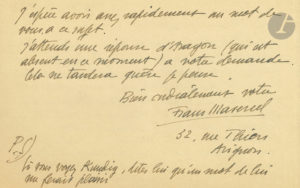 J'espère avoir assez rapidement un mot de
vous à ce sujet.
J'attends une réponse d'Aragon (qui est
absent en ce moment) à votre demande.
Cela ne tardera guère je pense.
Bien cordialement votre
Frans Masereel
32, rue Thiers
Avignon
P.S)
Si vous voyez Kundig, dites lui qu'un mot de lui
me ferait plaisir